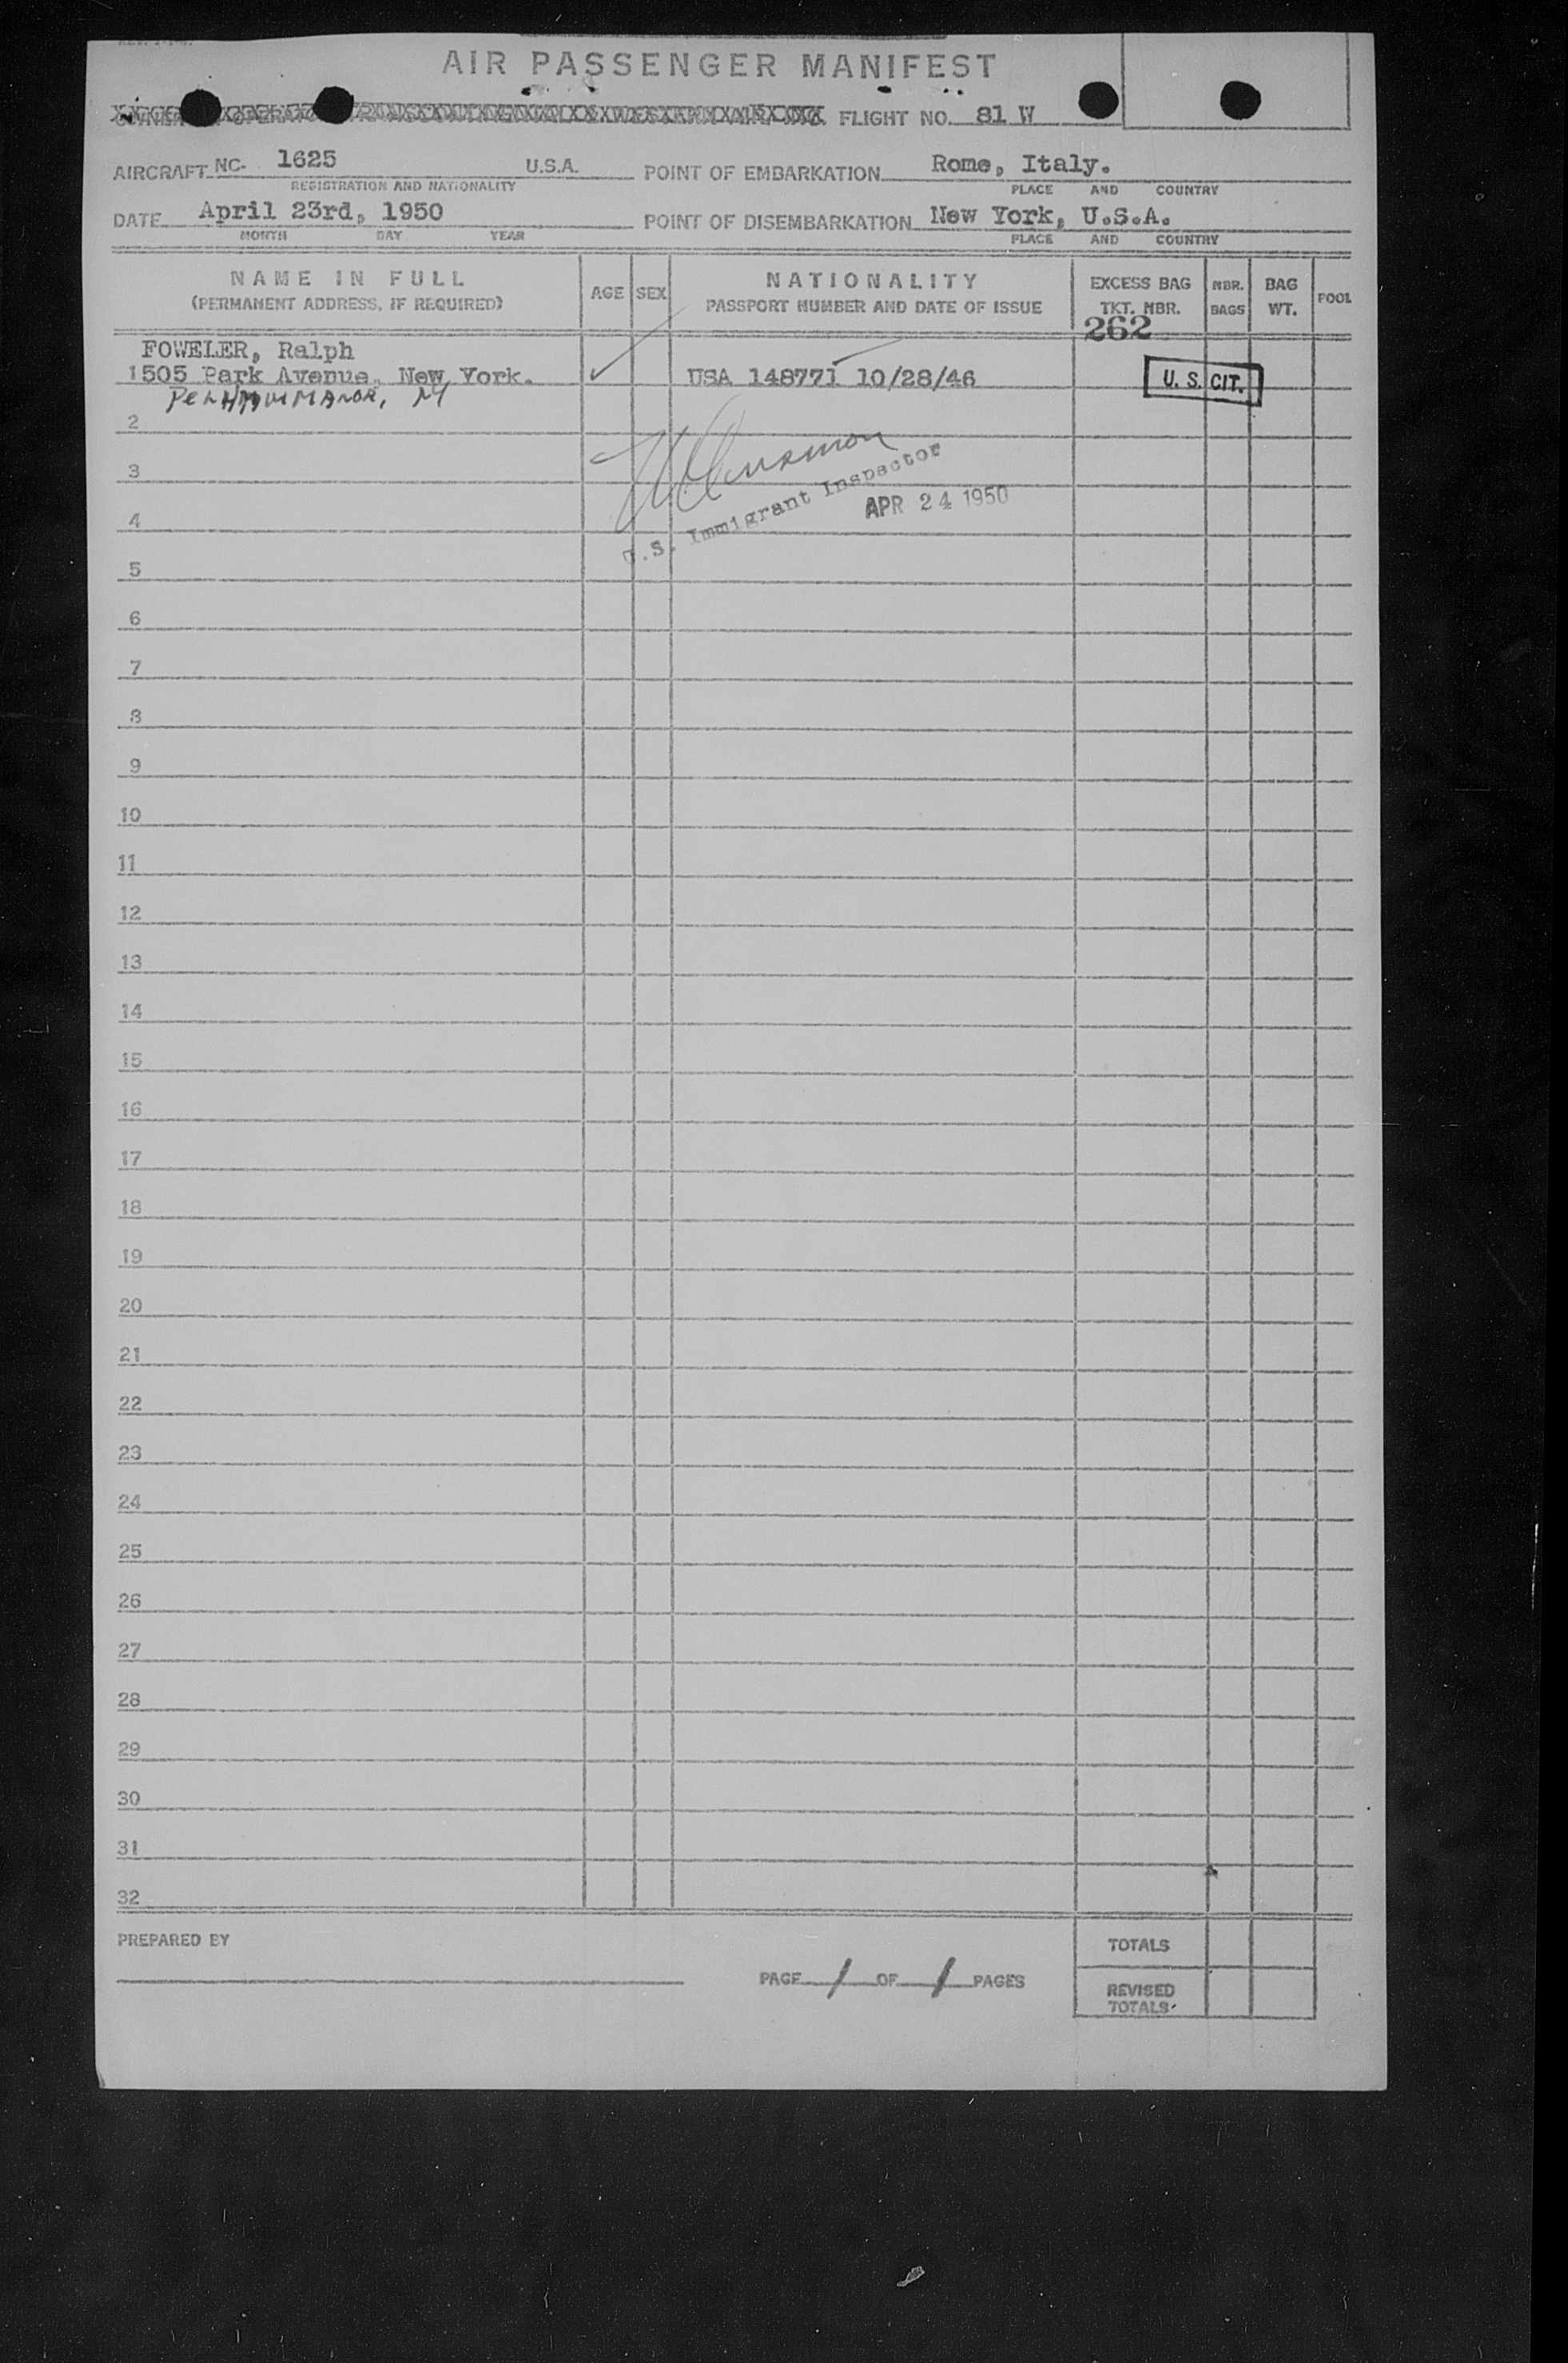 AIR PASSENGER MANIFEST
FLIGHT NO. 81 W
AIRCRAFT NC- 1625 U.S.A. POINT OF EMBARKATION Rome, Italy.
REGISTRATION AND NATIONALITY PLACE AND COUNTRY
DATE April 23rd, 1950 POINT OF DISEMBARKATION New York, U.S.A.
MONTH DAY YEAR PLACE AND COUNTRY
NAME IN FULL AGE SEX NATIONALITY EXCESS BAG NBR. BAG POOL
(PERMANENT ADDRESS, IF REQUIRED) PASSPORT NUMBER AND DATE OF ISSUE TKT. NBR. BAGS WT.
262
FOWELER, Ralph
1505 Park Avenue, New York. USA 148771 10/28/46 U. S. CIT.
MANOR, NY
2
3
U.S. Immigrant Inspector
APR 24 1950
4
5
6
7
8
9
10
11
12
13
14
15
16
17
18
19
20
21
22
23
24
25
26
27
28
29
30
31
32
PREPARED BY TOTALS
PAGE 1 OF 1 PAGES REVISED
TOTALS